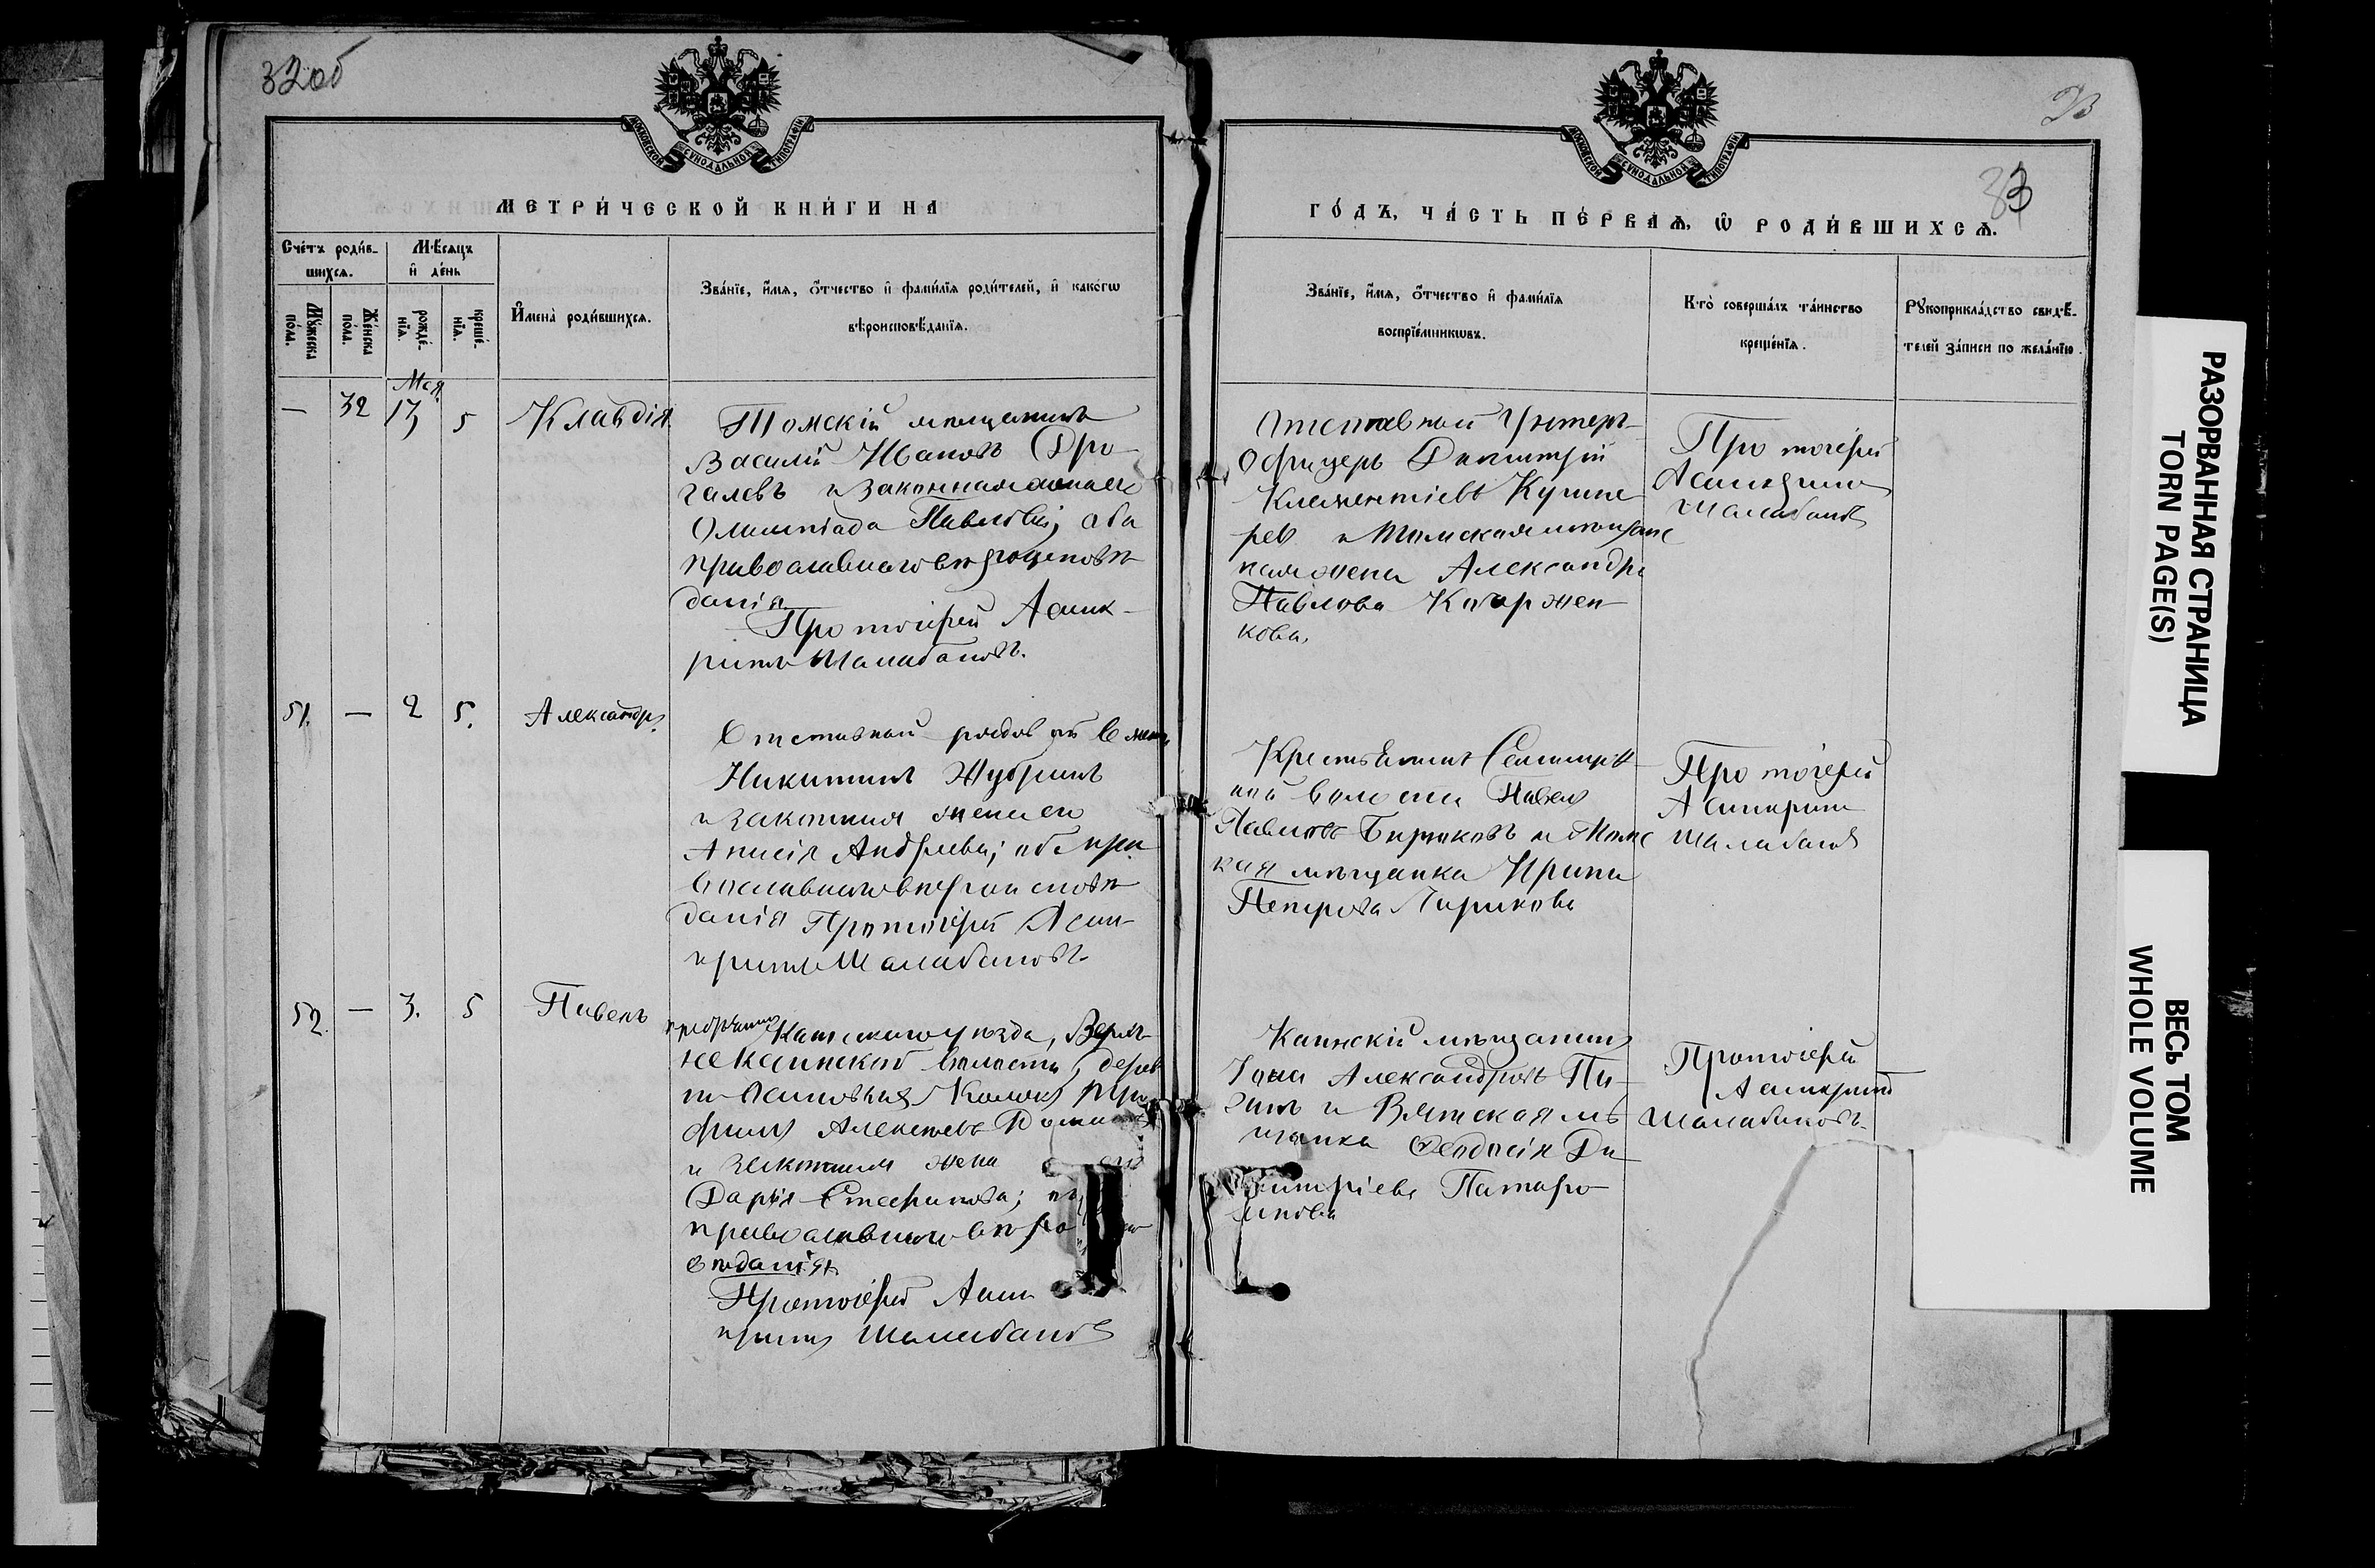 32об
МОСКОВСКОЙ СѴНОДАЛЬНОЙ ТИПОГРАФІИ
МЕТРИ́ЧЕСКОЙ КНИ́ГИ НА
Сче́тъ роди́в-
шихся.
Мѣ́сяцъ
и҆ де́нь
Мꙋ́жеска
по́ла.
Же́нска
по́ла.
рожде́-
нїѧ.
креще́-
нїѧ.
И҆мена̀ роди́вшихсѧ.
Зва́нїе, и҆́мѧ, ѻ҆́тчество и҆ фами́лїѧ роди́телей, и҆ како́гѡ
вѣроисповѣ́данїѧ.
Мая
— 32 13 5 Клавдія
Томскій мѣщанинъ
Василій Ивановъ Дро-
галевъ и законная жена его
Олимпіада Павлова; оба
православнаго вѣроисповѣ
данія.
Протоіерей Асинк-
ритъ Шалабановъ.
51. — 2 5. Александръ
Отставной рядовой
Никитинъ
и законная жена его
Анисія Андреева; оба пра
вославнаго вѣроисповѣ
данія Протоіерей Асин-
критъ Шалабановъ.
52. — 3. 5 Павелъ
Каинскаго уѣзда, Верх-
некаинской волости, дерев
ни Осиновыя Колки Три
филъ Алексѣевъ
и законная жена его
Дарія Стефанова;
православнаго вѣро
вѣданія
Протоіерей Асин
критъ Шалабановъ
33
МОСКОВСКОЙ СѴНОДАЛЬНОЙ ТИПОГРАФІИ
ГО́ДЪ, ЧА́СТЬ ПЕ́РВАѦ, Ѡ҆ РОДИ́ВШИХСѦ.
Зва́нїе, и҆́мѧ, ѻ҆́тчество и҆ фами́лїѧ
воспрїе́мникѡвъ.
Кто̀ соверша́лъ та́инство
креще́нїѧ.
Рꙋкоприкла́дство свидѣ́-
телей за́писи по жела́нїю.
Отставной Унтеръ-
Офицеръ Димитрій
Климентіевъ
и Томская мѣщанс
кая жена Александра
Павлова
кова.
Протоіерей
Асинкритъ
Шалабановъ
Крестьянинъ
ной волости Павелъ
Павловъ Бирюковъ и Томс
кая мѣщанка Ирина
Петрова
Протоіерей
Асинкритъ
Шалабановъ
Каинскій мѣщанинъ
Іона Александровъ Пи-
и Вятская мѣ
щанка Ѳеодосія Ди
митріева
Протоіерей
Асинкритъ
Шалабановъ.
РАЗОРВАННАЯ СТРАНИЦА
TORN PAGE(S)
ВЕСЬ ТОМ
WHOLE VOLUME